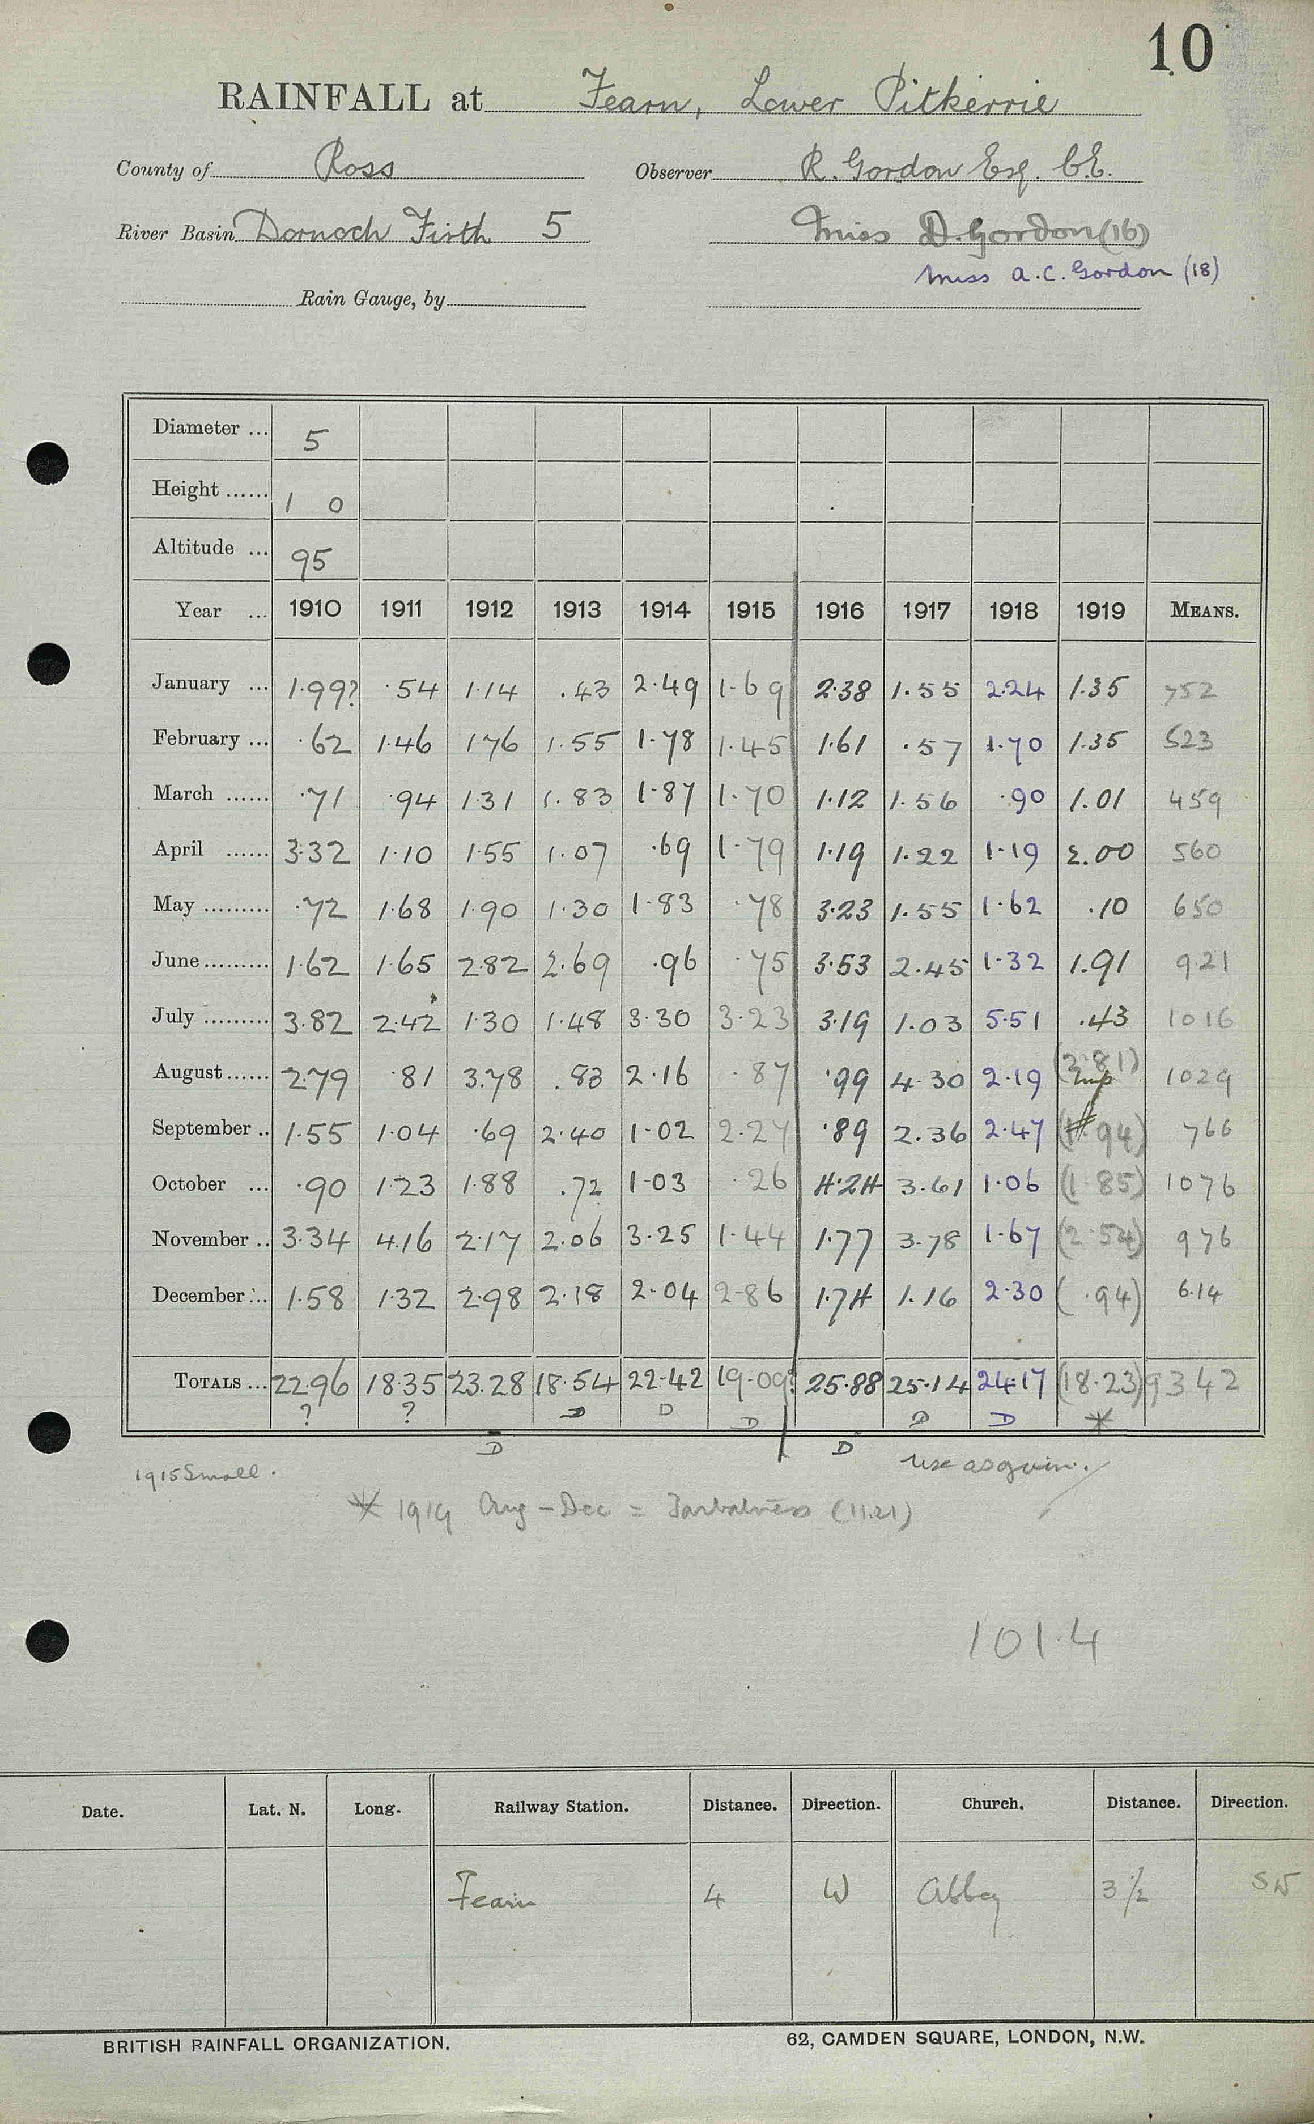 10
RAINFALL at Fearn, Lower Pitkerrie
County of Ross Observer R. Gordon Esq. C.E.
River Basin Dornoch Firth 5 Miss D. Gordon (16)
Miss A.C. Gordon (18)
Rain Gauge, by
Diameter ... 5
Height ...... 1 0
Altitude ... 95
Year ... 1910 1911 1912 1913 1914 1915 1916 1917 1918 1919 MEANS.
January ... 1.99? .54 1.14 .43 2.49 1.69 2.38 1.55 2.24 1.35 752
February ... .62 1.46 1.76 1.55 1.78 1.45 1.61 .57 1.70 1.35 523
March ...... .71 .94 1.31 1.83 1.87 1.70 1.12 1.56 .90 1.01 459
April ...... 3.32 1.10 1.55 1.07 .69 1.79 1.19 1.22 1.19 2.00 560
May ......... .72 1.68 1.90 1.30 1.83 .78 3.23 1.55 1.62 .10 650
June ......... 1.62 1.65 2.82 2.69 .96 .75 3.53 2.45 1.32 1.91 921
July ......... 3.82 2.42 1.30 1.48 3.30 3.23 3.19 1.03 5.51 .43 1016
August ...... 2.79 .81 3.78 .83 2.16 .87 .99 4.30 2.19 (2.81) 1029
September .. 1.55 1.04 .69 2.40 1.02 2.27 .89 2.36 2.47 (1.94) 766
October ... .90 1.23 1.88 .72 1.03 .26 4.24 3.61 1.06 (1.85) 1076
November .. 3.34 4.16 2.17 2.06 3.25 1.44 1.77 3.78 1.67 (2.54) 976
December ... 1.58 1.32 2.98 2.18 2.04 2.86 1.74 1.16 2.30 (.94) 614
TOTALS ... 22.96 18.35 23.28 18.54 22.42 19.09? 25.88 25.14 24.17 (18.23) 9342
? ? D D D D D D D *
1915 Small. use as given.
* 1919 Aug - Dec = Tarbatness (11.21)
101.4
Date. Lat. N. Long. Railway Station. Distance. Direction. Church. Distance. Direction.
Fearn 4 W Abbey 3 1/2 SW
BRITISH RAINFALL ORGANIZATION. 62, CAMDEN SQUARE, LONDON, N.W.